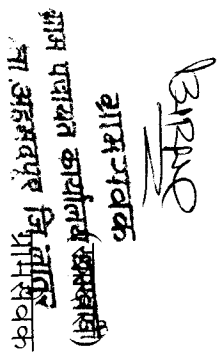 ग्रामसेवक
ग्राम पंचायत कार्यालय
ता.अहमदपूर जि.लातूर
ग्रामसेवक